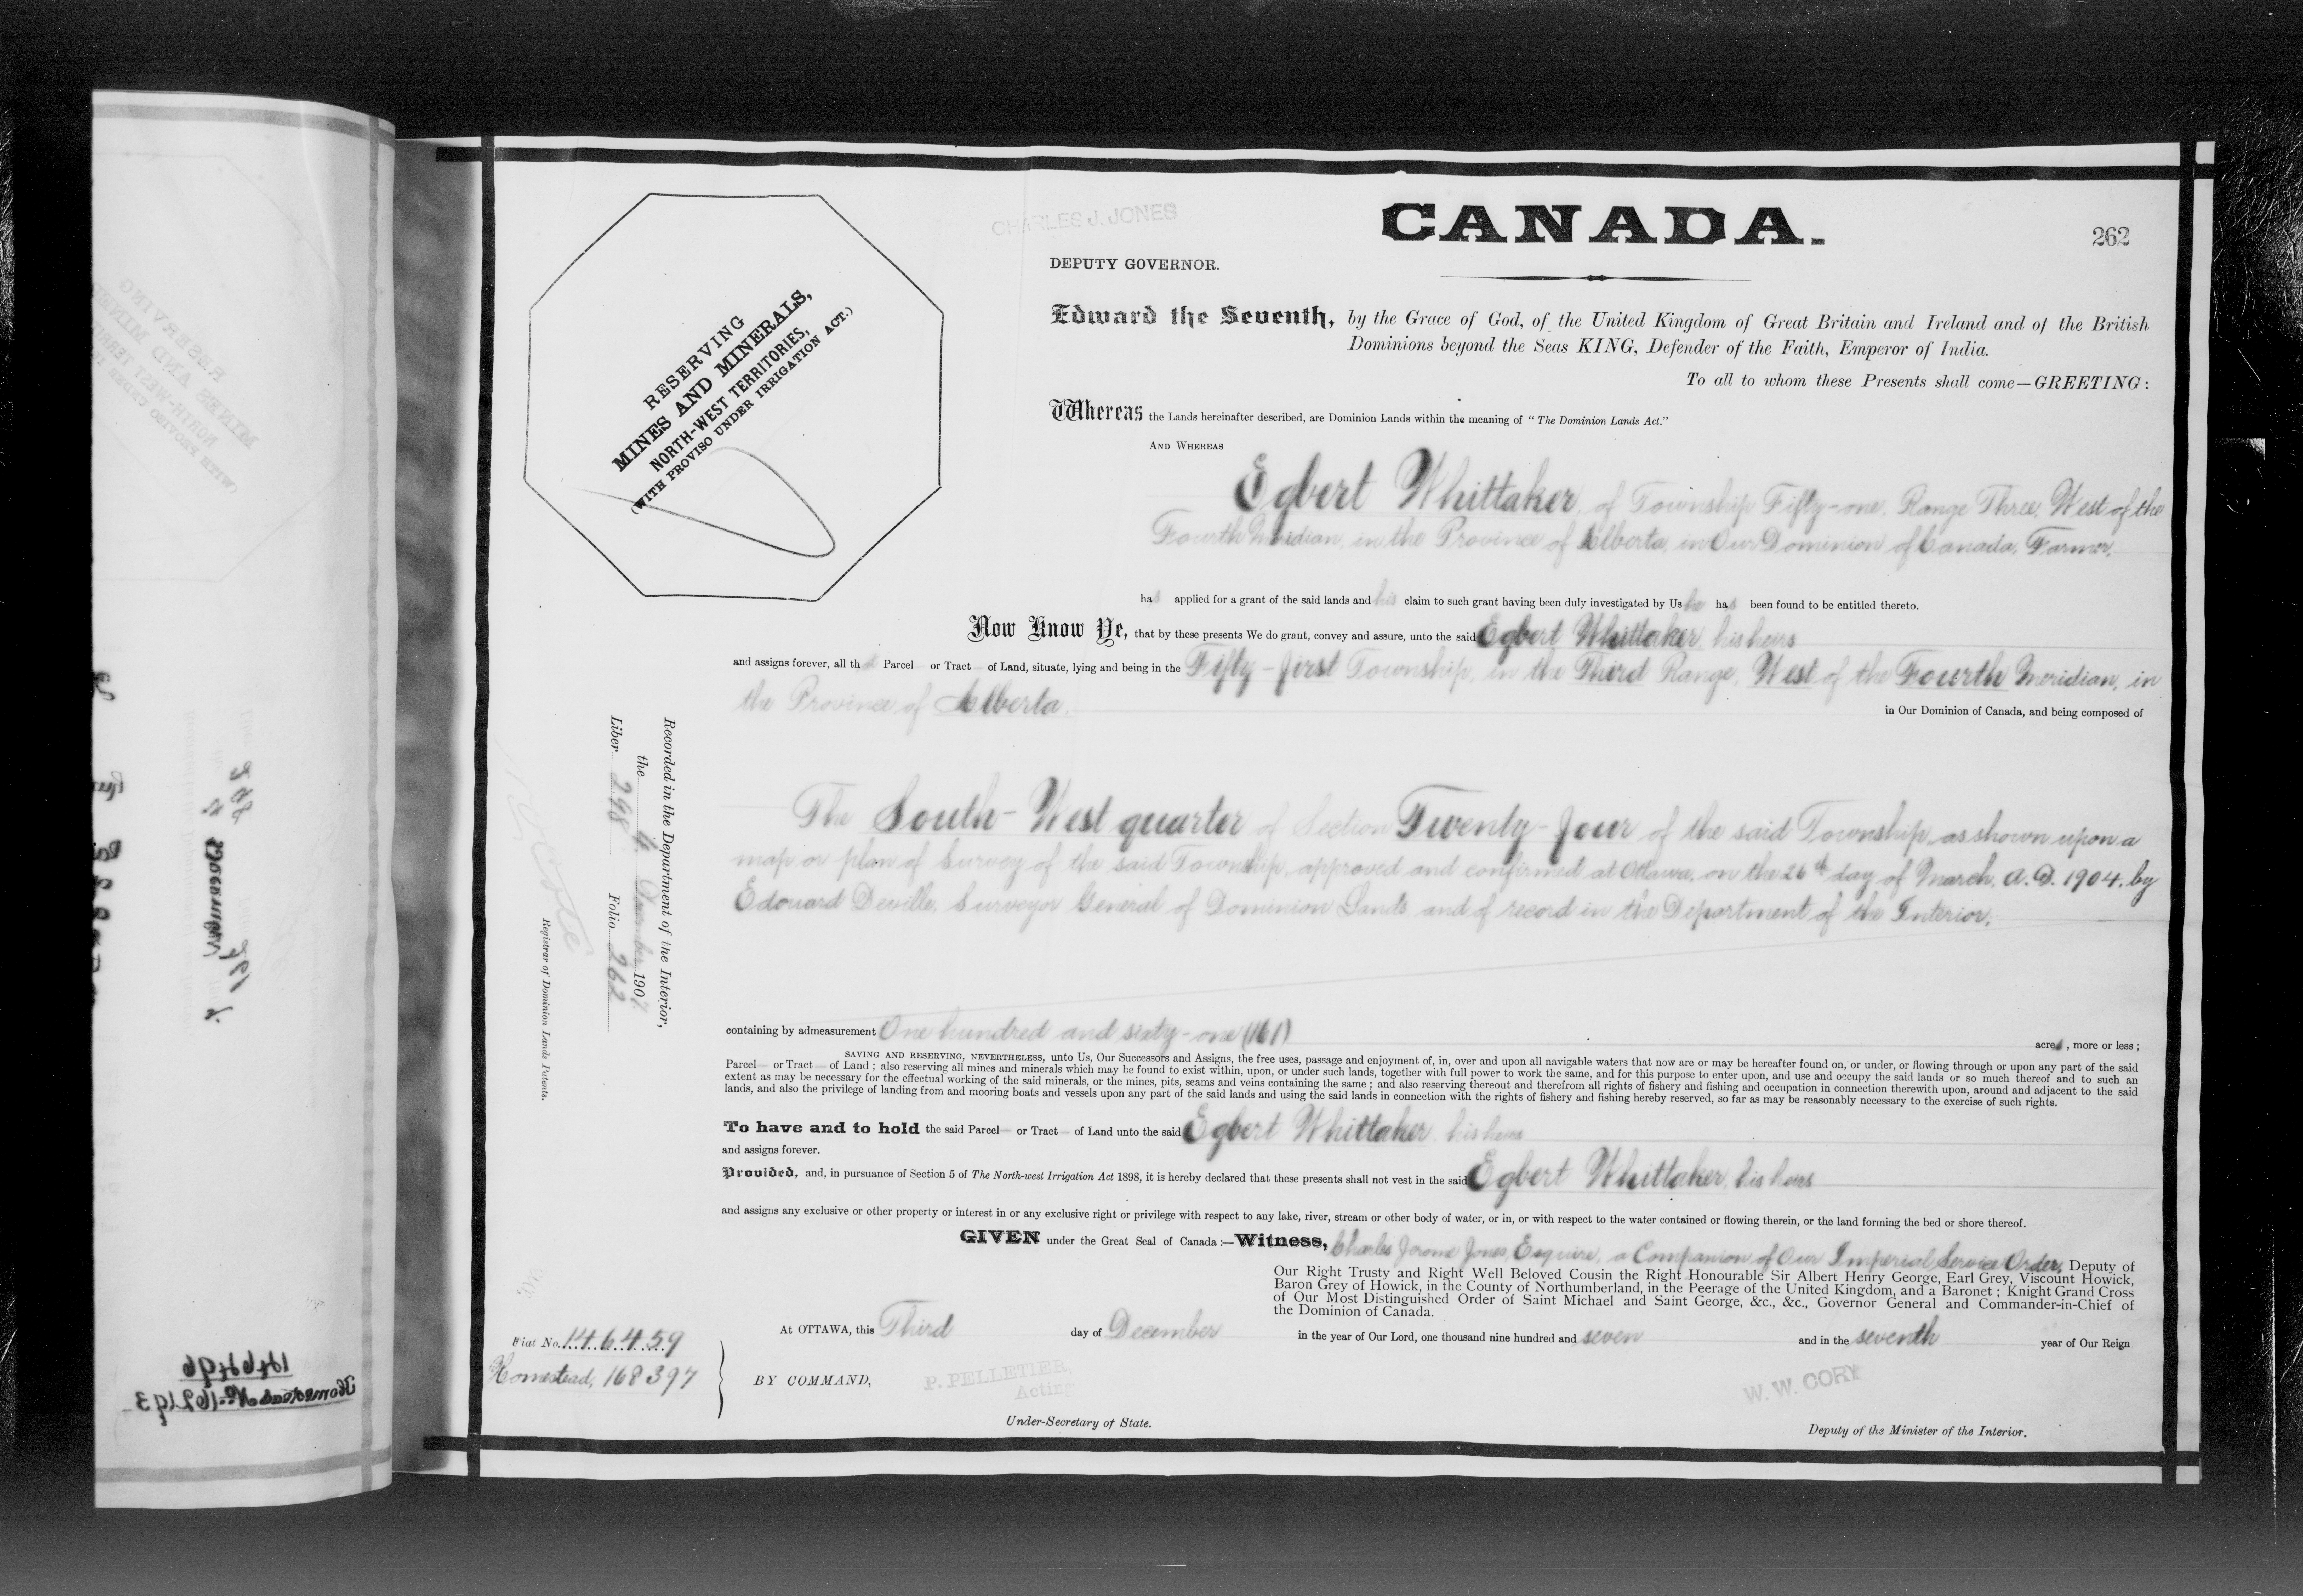 CHARLES J. JONES
CANADA.
262
DEPUTY GOVERNOR.
RESERVING
MINES AND MINERALS,
NORTH-WEST TERRITORIES,
(WITH PROVISO UNDER IRRIGATION ACT.)
Edward the Seventh, by the Grace of God, of the United Kingdom of Great Britain and Ireland and of the British
Dominions beyond the Seas KING, Defender of the Faith, Emperor of India.
To all to whom these Presents shall come—GREETING:
Whereas the Lands hereinafter described, are Dominion Lands within the meaning of "The Dominion Lands Act."
AND WHEREAS
Egbert Whittaker, of Township Fifty-one, Range Three, West of the
Fourth Meridian, in the Province of Alberta, in Our Dominion of Canada, Farmer,
has applied for a grant of the said lands and his claim to such grant having been duly investigated by Us he has been found to be entitled thereto.
Now Know Ye, that by these presents We do grant, convey and assure, unto the said Egbert Whittaker, his heirs
and assigns forever, all that Parcel or Tract of Land, situate, lying and being in the Fifty-first Township, in the Third Range, West of the Fourth Meridian, in
the Province of Alberta.
in Our Dominion of Canada, and being composed of
The South-West quarter of Section Twenty-four of the said Township, as shown upon a
map or plan of Survey of the said Township, approved and confirmed at Ottawa, on the 26th day of March, A.D. 1904, by
Edouard Deville, Surveyor General of Dominion Lands and of record in the Department of the Interior.
Recorded in the Department of the Interior,
the 4 December 1907
Liber 298 Folio 262
Registrar of Dominion Lands Patents.
containing by admeasurement One hundred and sixty-one (161) acres, more or less;
SAVING AND RESERVING, NEVERTHELESS, unto Us, Our Successors and Assigns, the free uses, passage and enjoyment of, in, over and upon all navigable waters that now are or may be hereafter found on, or under, or flowing through or upon any part of the said
Parcel or Tract of Land; also reserving all mines and minerals which may be found to exist within, upon, or under such lands, together with full power to work the same, and for this purpose to enter upon, and use and occupy the said lands or so much thereof and to such an
extent as may be necessary for the effectual working of the said minerals, or the mines, pits, seams and veins containing the same; and also reserving thereout and therefrom all rights of fishery and fishing and occupation in connection therewith upon, around and adjacent to the said
lands, and also the privilege of landing from and mooring boats and vessels upon any part of the said lands and using the said lands in connection with the rights of fishery and fishing hereby reserved, so far as may be reasonably necessary to the exercise of such rights.
To have and to hold the said Parcel or Tract of Land unto the said Egbert Whittaker his heirs
and assigns forever.
Provided, and, in pursuance of Section 5 of The North-west Irrigation Act 1898, it is hereby declared that these presents shall not vest in the said Egbert Whittaker, his heirs
and assigns any exclusive or other property or interest in or any exclusive right or privilege with respect to any lake, river, stream or other body of water, or in, or with respect to the water contained or flowing therein, or the land forming the bed or shore thereof.
GIVEN under the Great Seal of Canada:—Witness, Charles Jerome Jones, Esquire, a Companion of Our Imperial Service Order, Deputy of
Our Right Trusty and Right Well Beloved Cousin the Right Honourable Sir Albert Henry George, Earl Grey, Viscount Howick,
Baron Grey of Howick, in the County of Northumberland, in the Peerage of the United Kingdom, and a Baronet; Knight Grand Cross
of Our Most Distinguished Order of Saint Michael and Saint George, &c., &c., Governor General and Commander-in-Chief of
the Dominion of Canada.
At OTTAWA, this Third day of December in the year of Our Lord, one thousand nine hundred and seven and in the seventh year of Our Reign
Fiat No. 146459
Homestead, 168397
BY COMMAND,
P. PELLETIER,
Acting
Under-Secretary of State.
W. W. CORY
Deputy of the Minister of the Interior.